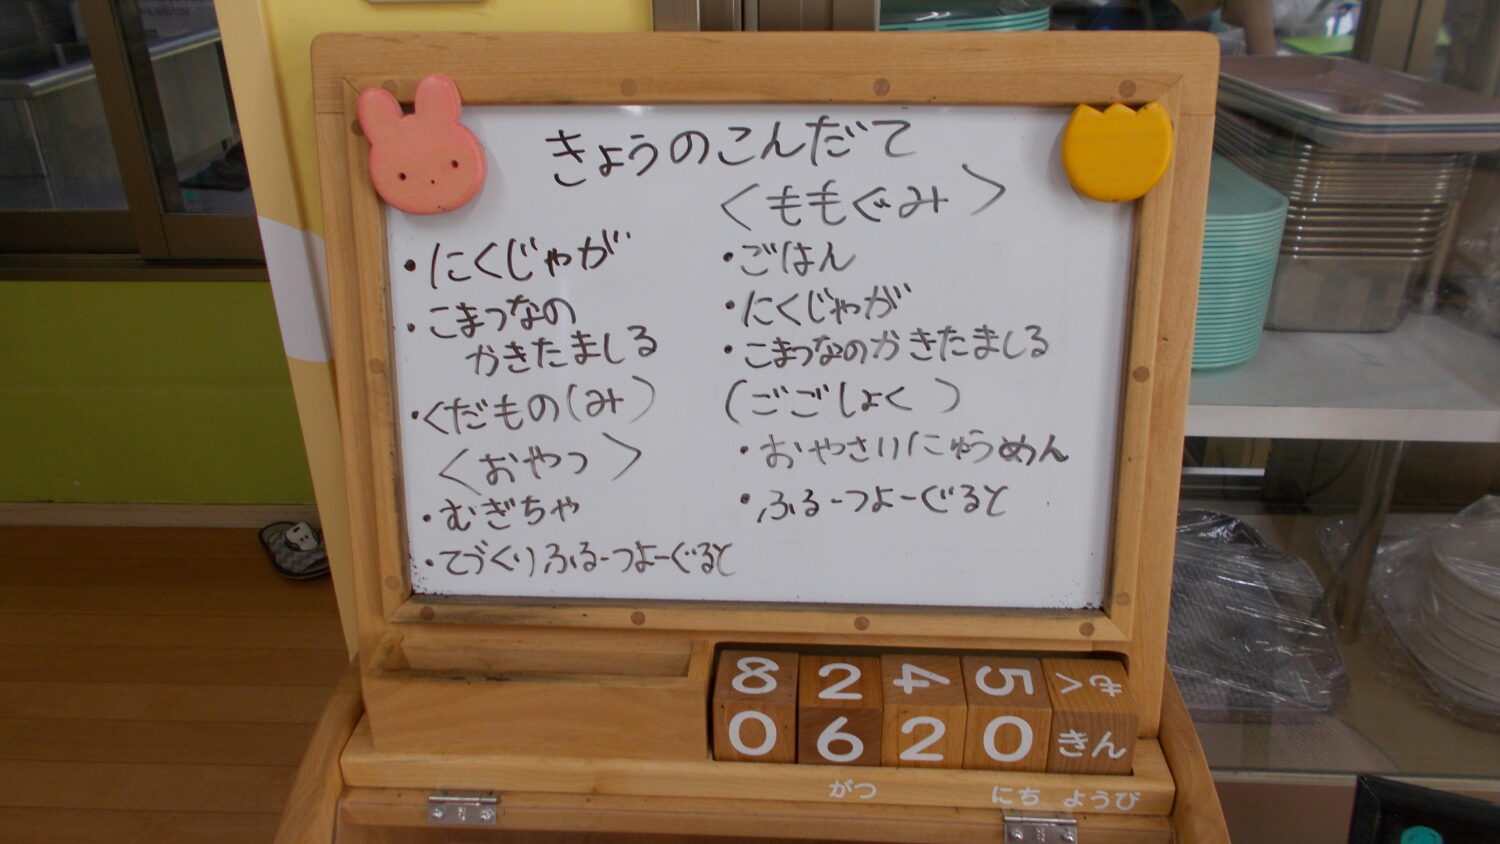 きょうのこんだて
・にくじゃが
・こまつなの
かきたましる
・くだもの(み)
<おやつ>
・むぎちゃ
・てづくりふるーつよーぐると
<ももぐみ>
・ごはん
・にくじゃが
・こまつなのかきたましる
(ごごしょく)
・おやさいにゅうめん
・ふるーつよーぐると
8 2 4 5 もく
0 6 2 0 きん
がつ にち ようび